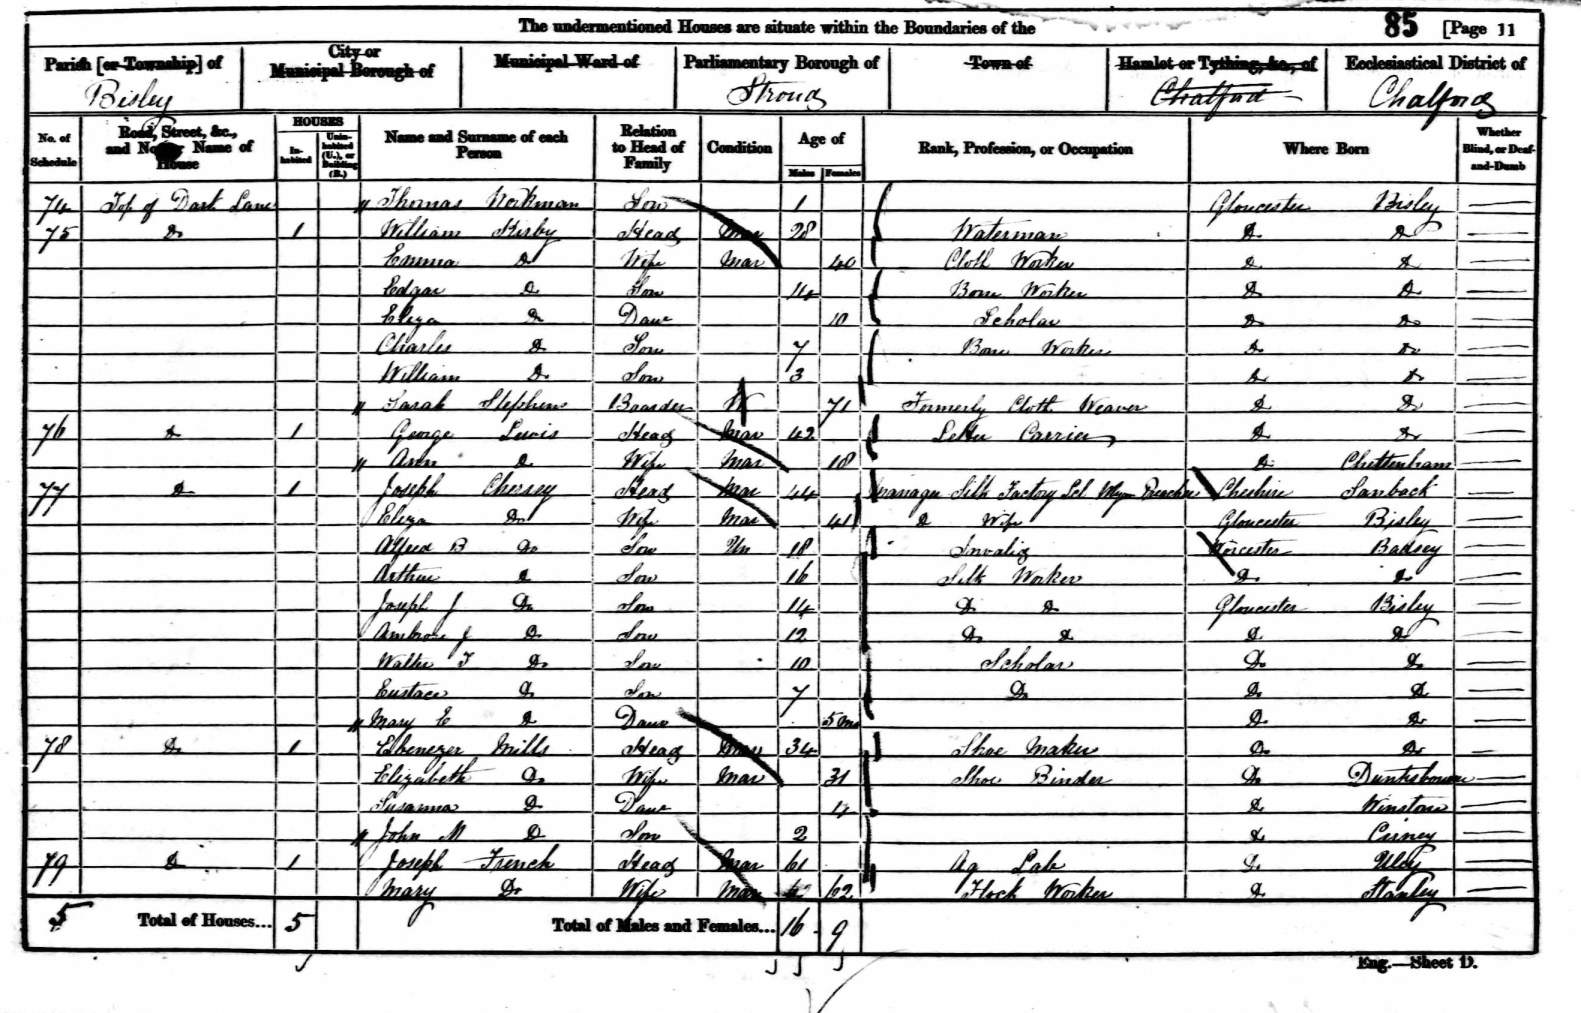 The undermentioned Houses are situate within the Boundaries of the 85 [Page 11
Parish [or Township] of City or Municipal Borough of Municipal Ward of Parliamentary Borough of Town of Hamlet or Tything, &c., of Ecclesiastical District of
Bisley Stroud Chalford Chalford
No. of Schedule Road, Street, &c., and No. or Name of House HOUSES Inhabited Uninhabited (U.), or Building (B.) Name and Surname of each Person Relation to Head of Family Condition Age of Males Females Rank, Profession, or Occupation Where Born Whether Blind, or Deaf-and-Dumb
74 Top of Dark Lane " Thomas Workman Son 1 Gloucester Bisley
75 Do 1 William Kirby Head Mar 28 Waterman Do Do
Emma Do Wife Mar 40 Cloth Worker Do Do
Edgar Do Son 14 Bone Worker Do Do
Eliza Do Daur 10 Scholar Do Do
Charles Do Son 7 Bone Worker Do Do
William Do Son 3 Do Do
" Sarah Stephens Boarder W 71 Formerly Cloth Weaver Do Do
76 Do 1 George Lewis Head Mar 42 Letter Carrier Do Do
" Ann Do Wife Mar 18 Do Cheltenham
77 Do 1 Joseph Head Mar 44 Manager Silk Factory Preacher Cheshire Sanback
Eliza Do Wife Mar 41 Do Wife Gloucester Bisley
Alfred B Do Son Un 18 Invalid Worcester Badsey
Arthur Do Son 16 Silk Worker Do Do
Joseph J Do Son 14 Do Do Gloucester Bisley
Ambrose J Do Son 12 Do Do Do Do
Walter T Do Son 10 Scholar Do Do
Eustace Do Son 7 Do Do Do
" Mary E Do Daur 5 mo Do Do
78 Do 1 Ebenezer Mills Head Mar 34 Shoe Maker Do Do
Elizabeth Do Wife Mar 31 Shoe Binder Do Duntsbourne
Susanna Do Daur 4 Do Winstone
" John M Do Son 2 Do Cirney
79 Do 1 Joseph French Head Mar 61 Ag Lab Do Uley
Mary Do Wife Mar 62 Flock Worker Do Stanley
5 Total of Houses... 5 Total of Males and Females... 16 9
Eng.—Sheet D.